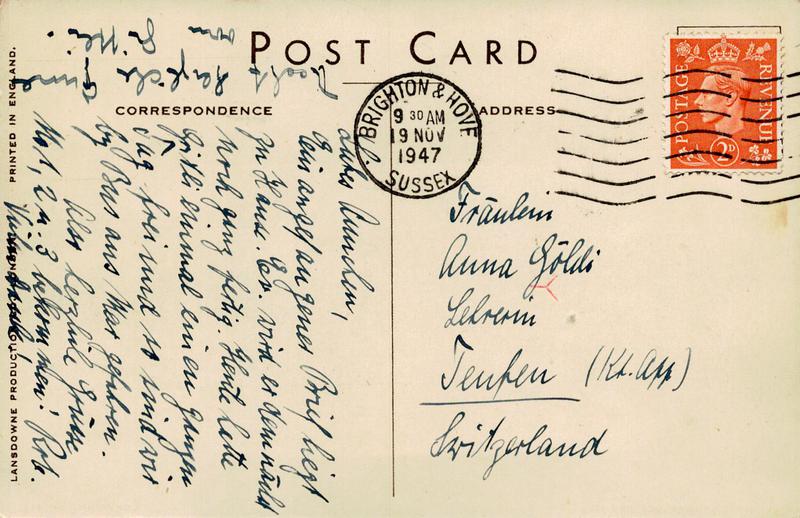 POST CARD
CORRESPONDENCE
ADDRESS
PRINTED IN ENGLAND.
LANSDOWNE PRODUCTION
Ein angefangener Brief liegt
zu Hause. Er wird demnächst
noch ganz fertig. Heute hatte
einmal einen ganzen
Tag frei und so sind wir
by Bus ans Meer gefahren.
Also herzliche Grüsse
No 1, 2 u. 3 bekommen! Rob.
Vielen Dank!
BRIGHTON & HOVE
9 30 AM
19 NOV
1947
SUSSEX
POSTAGE
REVENUE
2D
Fräulein
Anna Göldi
Lehrerin
Teufen (Kt. App)
Switzerland